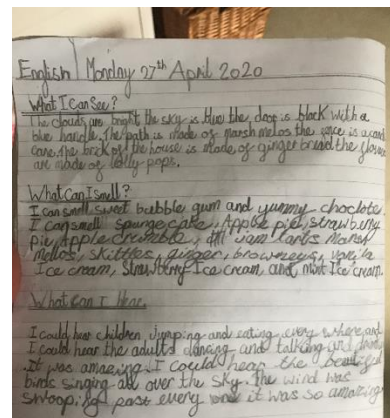 English Monday 27th April 2020
What I Can See?
The clouds are bright the sky is blue the door is black with a
blue handle. The path is made of marsh melos the fence is a candy
cane, the brick of the house is made of ginger bread the flowers
are made of lolly pops.
What Can I smell?
I can smell sweet bubble gum and yummy choclote.
I can smell spunge cake, Apple pie, strawberry
pie, Apple crumble, jam tarts marsh
mellos, skittles, ginger, browneys, vanila
Ice cream, strawberry Ice cream, and mint Ice cream.
What can I Hear.
I could hear children jumping and eating every where and
I could hear the adults dancing and talking and
It was amazing I could hear the
birds singing all over the sky. The wind was
swooping past every one it was so amazing